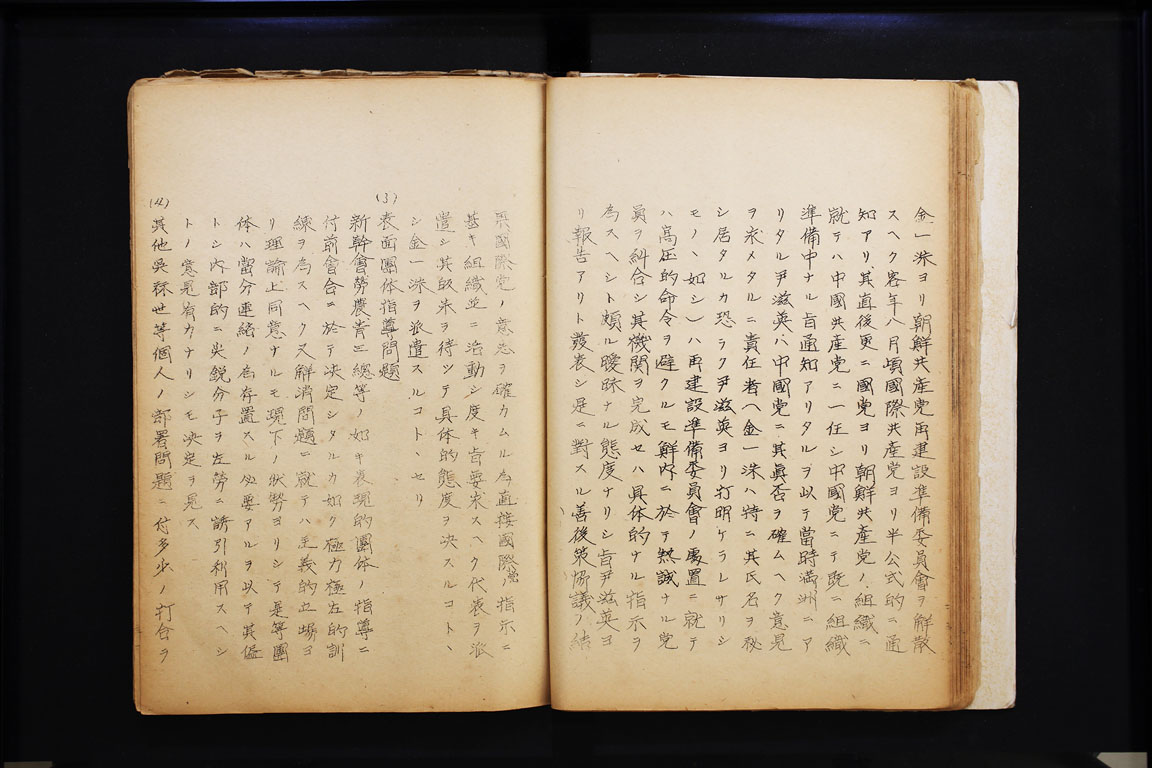 金一洙ヨリ朝鮮共産党再建設準備委員會ヲ解散
スヘク客年八月頃國際共産党ヨリ半公式的ニ通
知アリ其直後更ニ國党ヨリ朝鮮共産党ノ組織ニ
就テハ中國共産党ニ一任シ中國党ニテ既ニ組織
準備中ナル旨通知アリタルヲ以テ當時満洲ニア
リタル尹滋英ハ中國党ニ其眞否ヲ確ムヘク意見
ヲ求メタルニ責任者(金一洙ハ特ニ其氏名ヲ秘
シ居タルカ恐ラク尹滋英ヨリ打明ケラレサリシ
モノヽ如シ)ハ再建設準備委員會ノ處置ニ就テ
ハ高圧的命令ヲ避クルモ鮮内ニ於テ熱誠ナル党
員ヲ糾合シ其機関ヲ完成セハ具体的ナル指示ヲ
為スヘシト頗ル曖昧ナル態度ナリシ旨尹滋英ヨ
リ報告アリト發表シ是ニ對スル善後策協議ノ結
果國際党ノ意志ヲ確カムル為直接國際党ノ指示ニ
基キ組織並ニ活動シ度キ旨要求スヘク代表ヲ派
遣シ其帰来ヲ待ツテ具体的態度ヲ決スルコトヽ
シ金一洙ヲ派遣スルコトヽセリ
(3)
表面團体指導問題
新幹會勞農青三總等ノ如キ表現的團体ノ指導ニ
付前會合ニ於テ決定シタルカ如ク極力極左的訓
練ヲ為スヘク又解消問題ニ就テハ主義的立場ヨ
リ理論上同意ナルモ現下ノ状勢ヨリシテ是等團
体ハ當分連絡ノ為存置スル必要アルヲ以テ其儘
トシ内部的ニ尖鋭分子ヲ左勞ニ誘引利用スヘシ
トノ意見有力ナリシモ決定ヲ見ス
(4)
其他吳秉世等個人ノ部署問題ニ付多少ノ打合ヲ